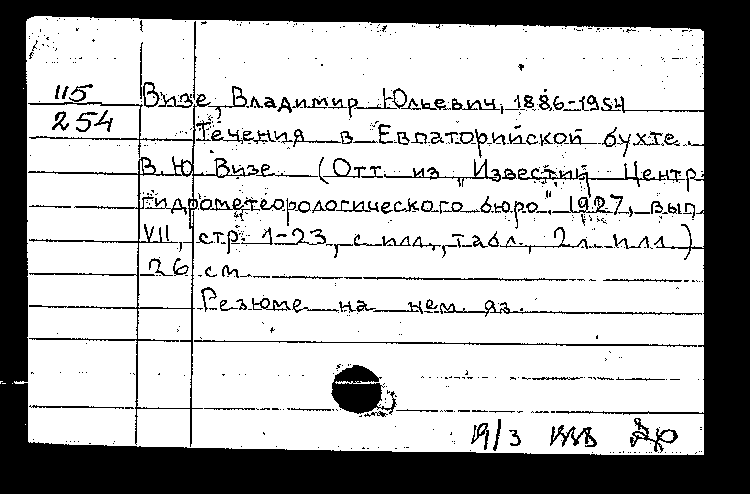 115
254
Визе, Владимир Юльевич, 1886-1954
Течения в Евпаторийской бухте.
В. Ю. Визе. (Отт. из „Известий Центр.
гидрометеорологического бюро". 1927, вып.
VII, стр. 1-23, с илл., табл., 2 л. илл.)
26 см.
Резюме на нем. яз.
19/3